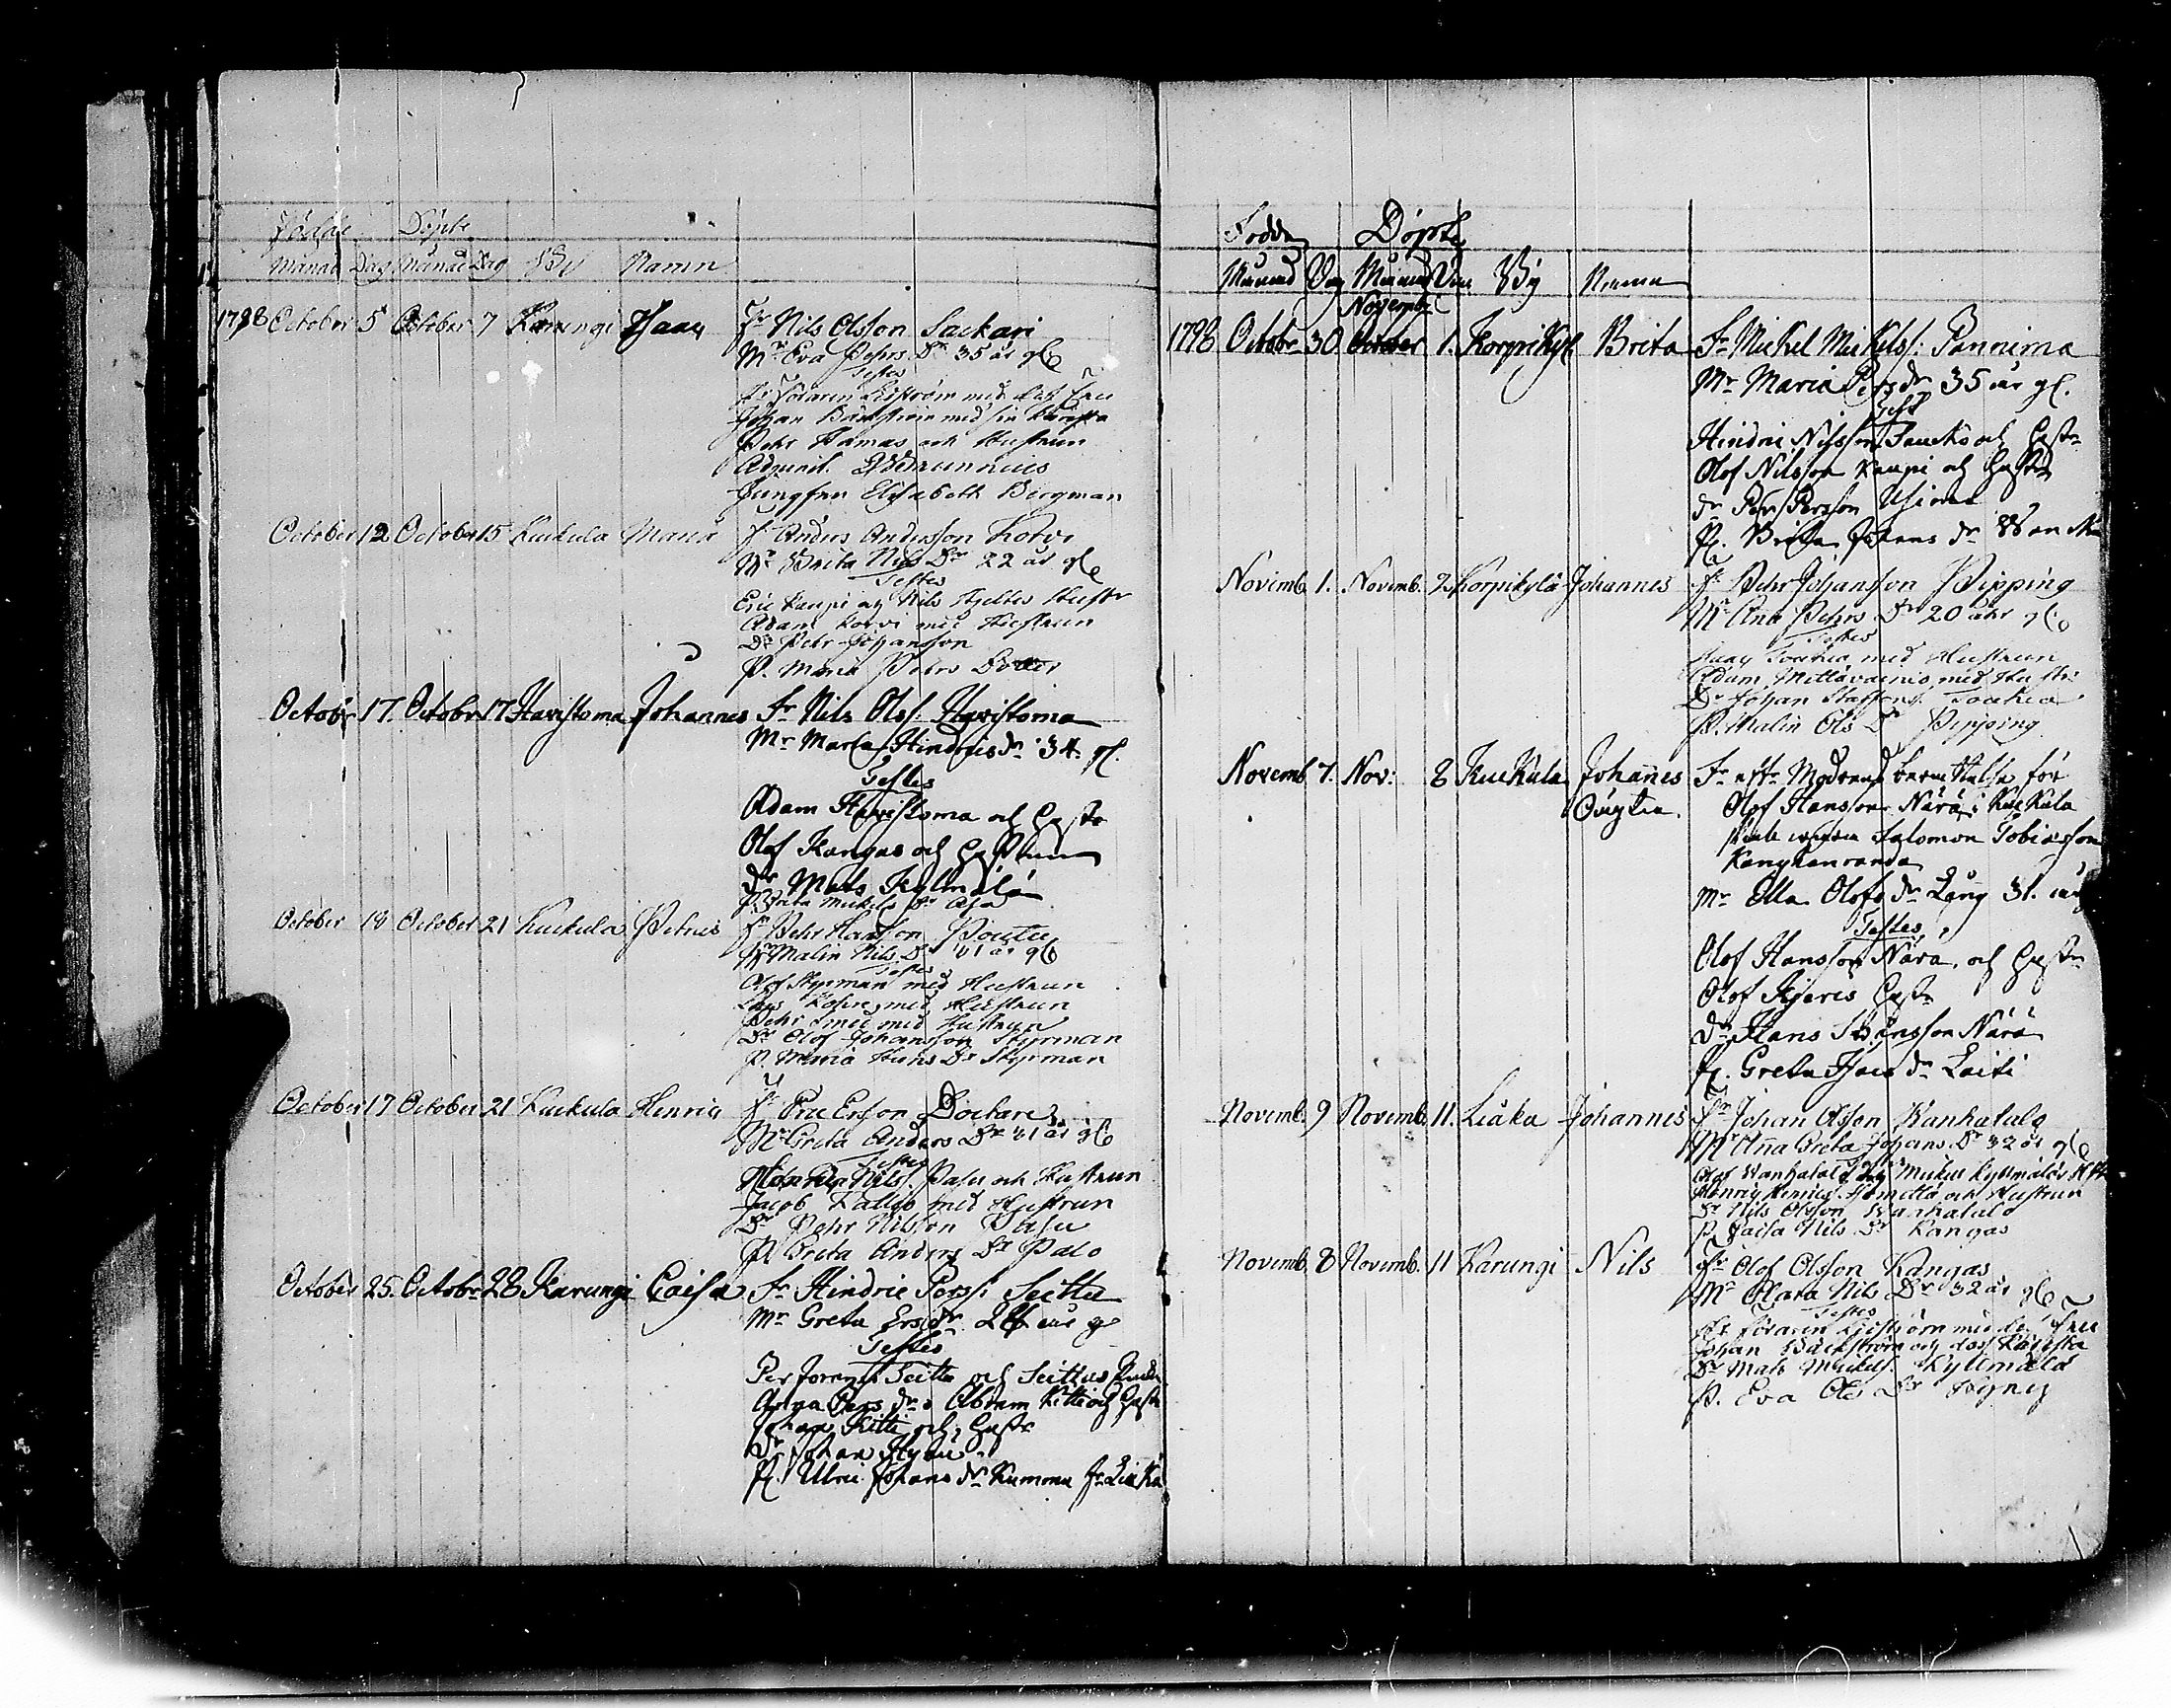 Födde Döpte
Månad Dag Månad Dag By Namn
1798 October 5 October 7 Karungi Isaac Fr Nils Olsson Sackari
Mr Eva Pehrs Dr 35 år gl
Testes
Johan Bäckström med sin Käresta
Pehr Hamas och Hustrun
Adjunct.
Jungfru Elisabeth Bergman
October 12 October 15 Kuckula Maria Fr Anders Andersson Korvi
Mr Brita Nils Dr 22 år gl
Testes
Eric Kaupi och Nils Hjeltes Hustr
Adam Korvi med Hustrun
Dr Pehr Johansson
P. Maria Pehrs Dotter
Octobr 17. Octobr 17 Havistoma Johannes Fr Nils Olss. Havistoma
Mr Marta Hindrics dr 34 gl.
Testes
Adam Havistoma och Hustr
Olof Kangas och Hustrun
dr Mats Kylmälä
P. Brita Mickels Dr
October 18 October 21 Kuckula Petrus Fr Pehr Hansson Poutu
Mr Malin Nils Dr 31 år gl
Testes
Olof Styrman med Hustrun
Lars med Hustrun
Pehr med Hustrun
Dr Olof Johansson Styrman
P. Maria Hans Dr Styrman
October 17 October 21 Kuckula Henric Fr Eric Ersson
Mr Greta Anders Dr 31 år gl
Testes
Nils. Palu och Hustrun
Jacob med Hustrun
Dr Pehr Nilsson
P. Greta Anders Dr Palo
October 25. Octobr 28 Karungi Caisa Fr Hindric Perss. Seittu
Mr Greta Ers dr år gl
Testes
Per Seittu och Seittus
Anna Pers dr. Abram Kitti och Hustr
Johan Kitti och Hustr
Dr Johan
P. Ulric Johans dr Kummu fr Liaka
Födde Döpte
Månad Dag Månad Dag By Namn
Novembr
1798 Octobr 30 October 1. Korpikyl Brita Fr Mickel Mickelss: Pannima
Mr Maria Pers dr 35 år gl.
Test
Hindric Nilsson och Hustr
Olof Nilsson Kaupi och Hustr
dr Per Persson
P. Brita Johans dr
Novemb. 1. Novemb. 2. Korpikylä Johannes Fr Pehr Johansson Pipping
Mr Ana Pehrs Dr 20 åhr gl
Testes
Isaac Toukia med Hustrun
Adam Mittövainio med Hustr:
Dr Johan Staffans. Toukia
P. Malin Ols Dr Pipping
Novemb 7. Nov: 8 Kuckula Johannes Fr efter Modrens berättelse för
Oägta. Olof Hansson Närä i Kuckula
Salomon Tobiasson
Kangkanranda
Mr Ella Olofs dr Lang 31. år
Testes
Olof Hansson Närä, och Hustr
Olof Kjeris Hustr
dr Hans Johansson Närä
P. Greta Isacs dr Laiti
Novemb. 9 Novemb. 11. Liaka Johannes Fr Johan Olsson Wanhatalo
Mr Ana Greta Johans Dr 32 år gl
Olof Wanhatalo och Mickel Kyllmäläs H
Henric Hometta och Hustrun
Dr Nils Olsson Wanhatalo
P. Caisa Nils Dr Kangas
Novemb. 8 Novemb. 11 Karungi Nils Fr Olof Olsson Kangas
Mr Clara Nils Dr 32 år gl
Testes
Johan Bäckström och dess Käresta
Dr Mats Mickels. Kyllmälä
P. Eva Ols Dr